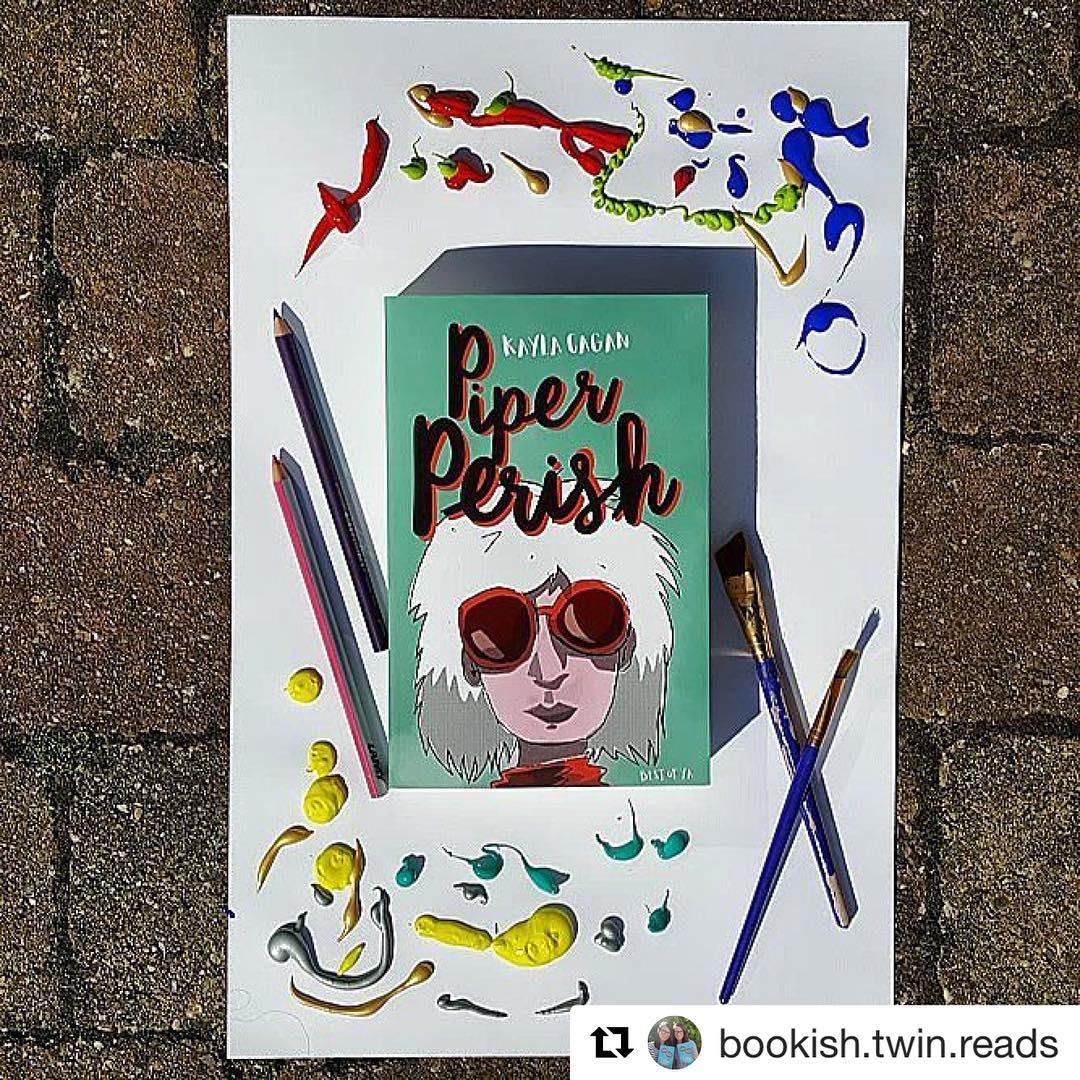 KAYLA CAGAN
Piper
Perish
BEST OF YA
bookish.twin.reads